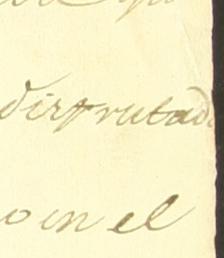 disfrutad
o en el